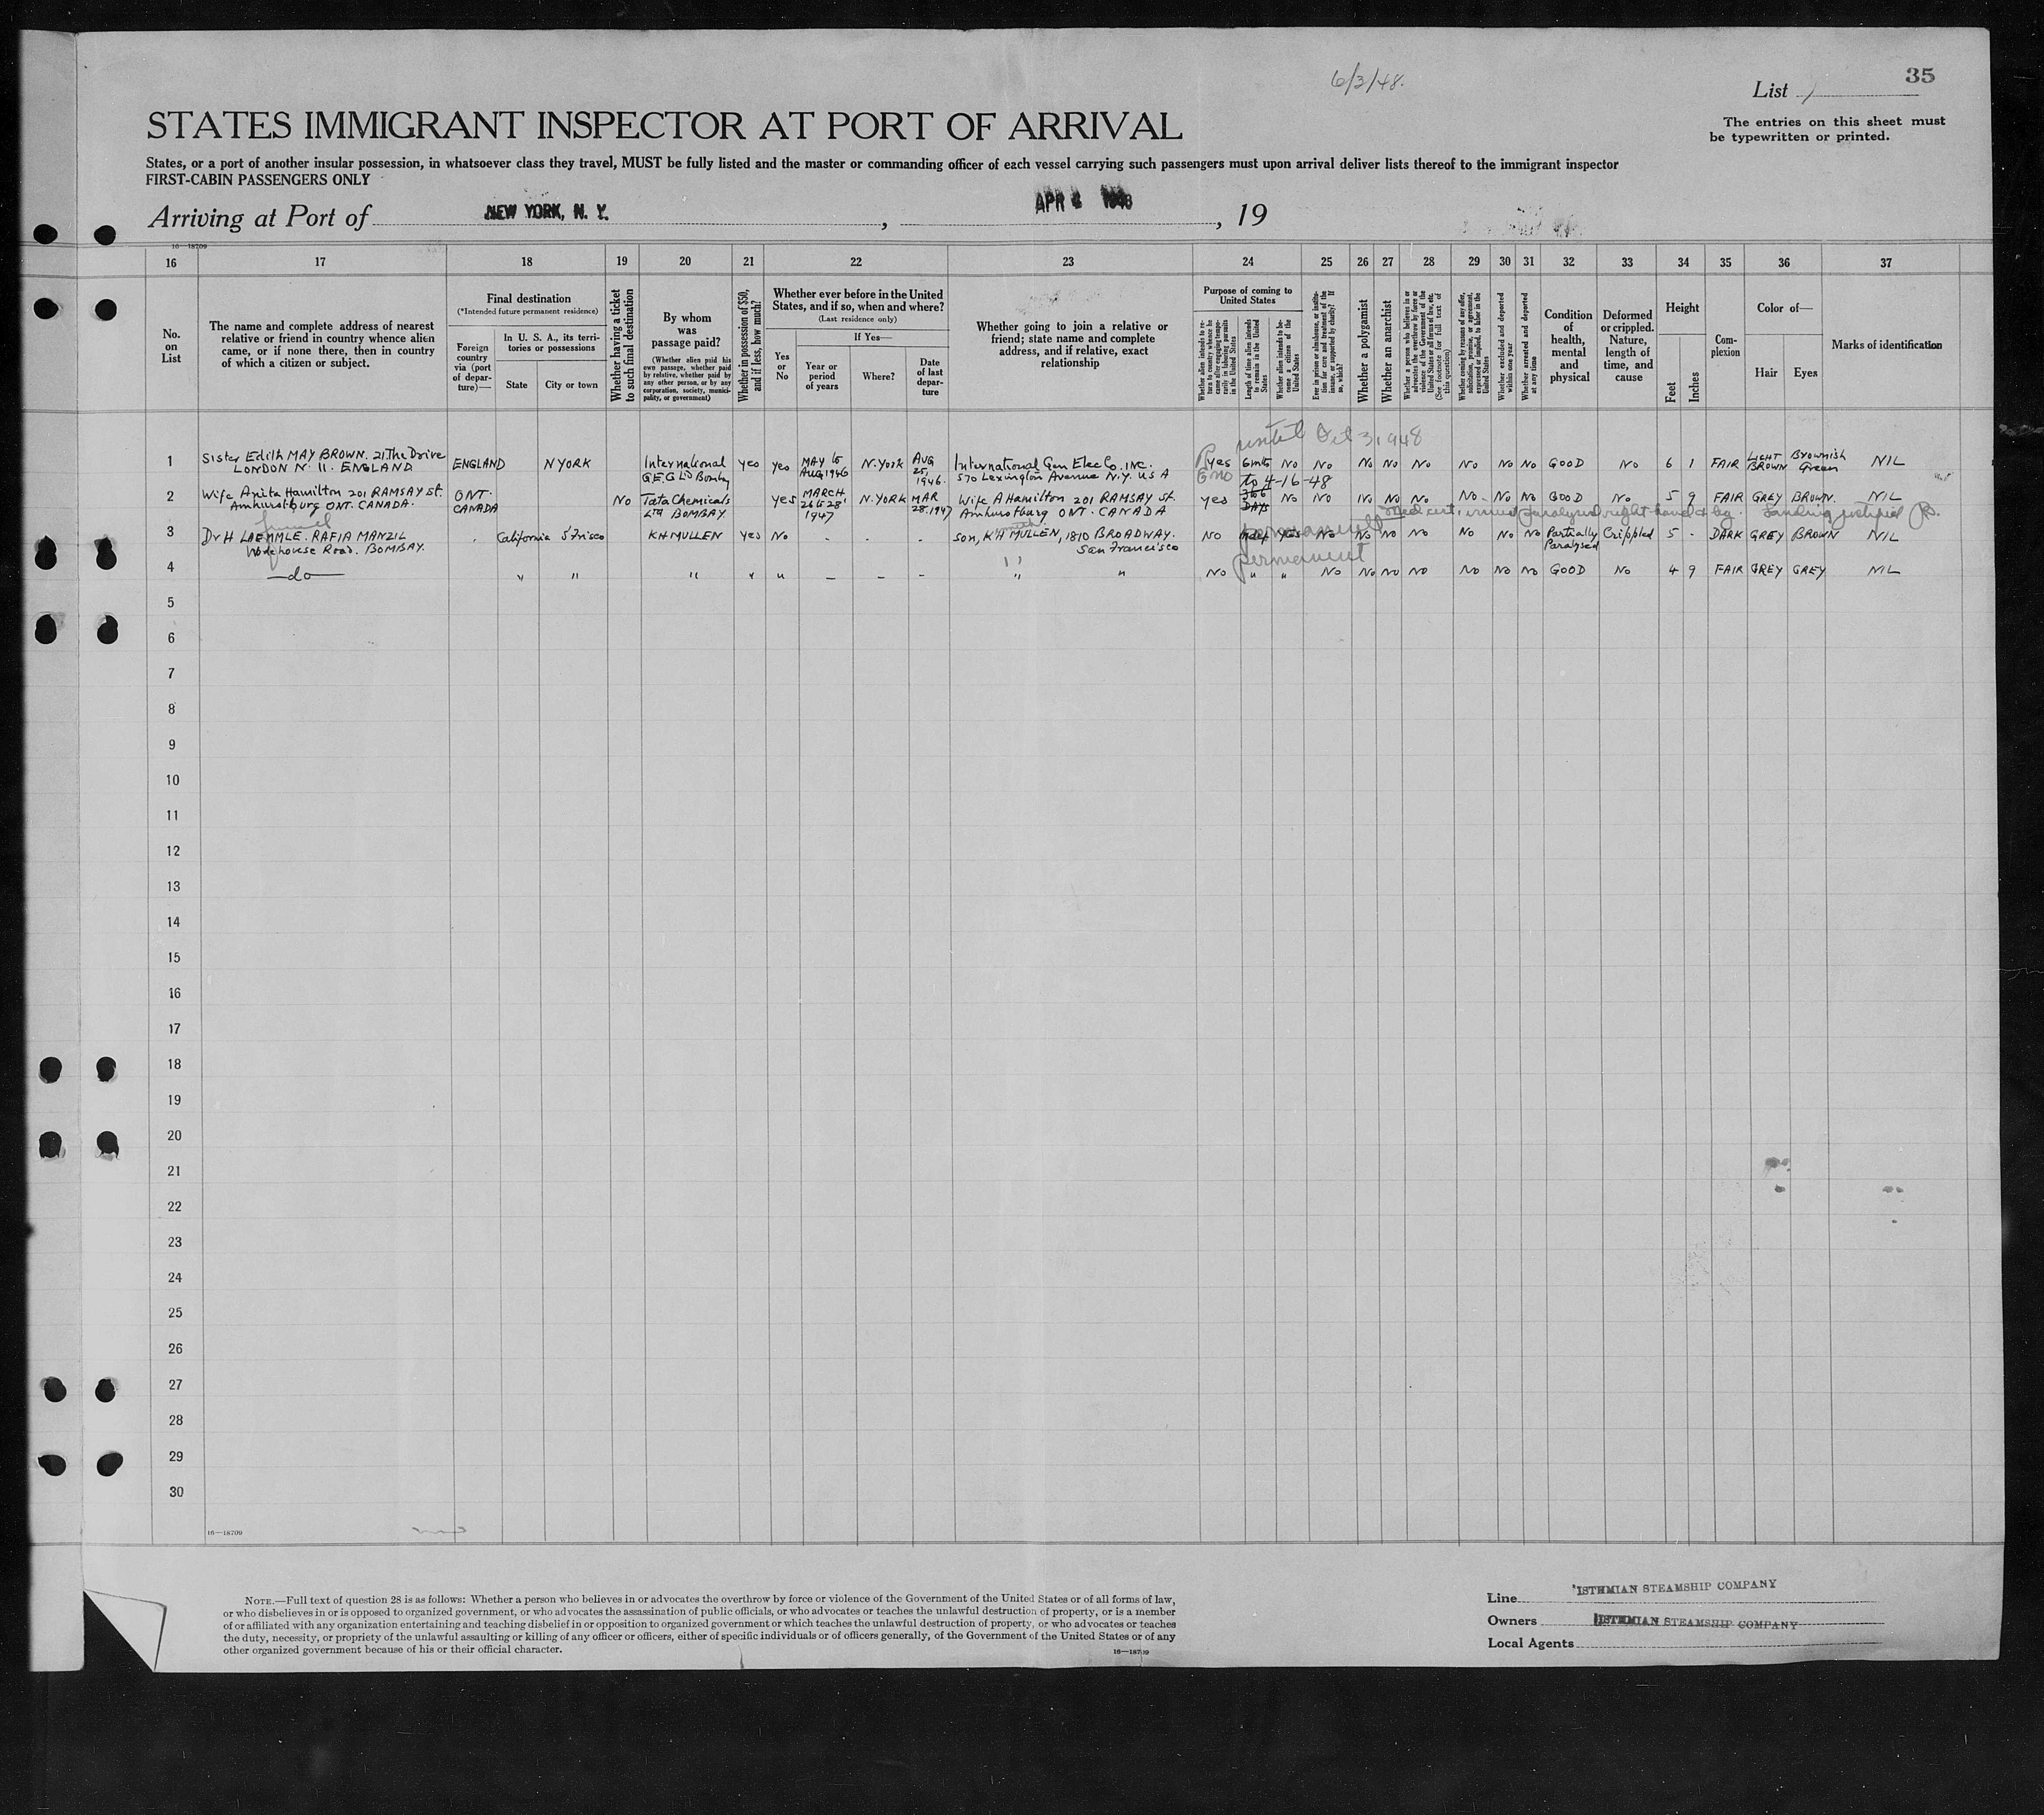 6/3/48.
35
List
The entries on this sheet must
be typewritten or printed.
STATES IMMIGRANT INSPECTOR AT PORT OF ARRIVAL
States, or a port of another insular possession, in whatsoever class they travel, MUST be fully listed and the master or commanding officer of each vessel carrying such passengers must upon arrival deliver lists thereof to the immigrant inspector
FIRST-CABIN PASSENGERS ONLY
Arriving at Port of NEW YORK, N. Y. , APR 4 1948 , 19
16—18709
16 17 18 19 20 21 22 23 24 25 26 27 28 29 30 31 32 33 34 35 36 37
No. on List
The name and complete address of nearest relative or friend in country whence alien came, or if none there, then in country of which a citizen or subject.
Final destination
(*Intended future permanent residence)
Foreign country via (port of departure)—
In U. S. A., its territories or possessions
State
City or town
Whether having a ticket to such final destination
By whom was passage paid?
(Whether alien paid his own passage, whether paid by relative, whether paid by any other person, or by any corporation, society, municipality, or government)
Whether in possession of $50, and if less, how much?
Whether ever before in the United States, and if so, when and where?
(Last residence only)
Yes or No
If Yes—
Year or period of years
Where?
Date of last departure
Whether going to join a relative or friend; state name and complete address, and if relative, exact relationship
Purpose of coming to United States
Whether alien intends to return to country whence he came after engaging temporarily in laboring pursuits in the United States
Length of time alien intends to remain in the United States
Whether alien intends to become a citizen of the United States
Ever in prison or almshouse, or institution for care and treatment of the insane, or supported by charity? If so, which?
Whether a polygamist
Whether an anarchist
Whether a person who believes in or advocates the overthrow by force or violence of the Government of the United States or all forms of law, etc. (See footnote for full text of this question)
Whether coming by reasons of any offer, solicitation, promise, or agreement, expressed or implied, to labor in the United States
Whether excluded and deported within one year
Whether arrested and deported at any time
Condition of health, mental and physical
Deformed or crippled. Nature, length of time, and cause
Height
Feet
Inches
Complexion
Color of—
Hair
Eyes
Marks of identification
until Oct 3, 1948
1 Sister Edith MAY BROWN. 21 The Drive LONDON N. 11. ENGLAND ENGLAND N YORK International G.E.C Ltd Bombay yes yes MAY to AUG 1946 N. York AUG 25, 1946. International Gen Elec Co. INC. 570 Lexington Avenue N.Y. USA yes 6 mts No No No No No No No No GOOD No 6 1 FAIR LIGHT BROWN Brownish Green NIL
to 4-16-48
2 Wife Anita Hamilton 201 RAMSAY St. Amhurstburg ONT. CANADA. ONT. CANADA No Tata Chemicals Ltd BOMBAY yes MARCH 26 to 28 1947 N. YORK MAR 28. 1947 Wife A Hamilton 201 RAMSAY St. Amhurstburg ONT. CANADA yes 366 DAYS No No No No No No No No GOOD No 5 9 FAIR GREY BROWN. NIL
friend
Med cert. issued paralysed right hand & leg. Landing justified
3 Dr H LAEMMLE. RAFIA MANZIL Wodehouse Road. BOMBAY. California S'Frisco KH MULLEN yes No - - - son, KH MULLEN, 1810 BROADWAY. San Francisco No Indef yes No No No No No No No Partially Paralysed Crippled 5 - DARK GREY BROWN NIL
permanent
permanent
4 —do— " " " " " - - - " " No " " No No No No No No No GOOD No 4 9 FAIR GREY GREY NIL
5
6
7
8
9
10
11
12
13
14
15
16
17
18
19
20
21
22
23
24
25
26
27
28
29
30
16—18709
NOTE.—Full text of question 28 is as follows: Whether a person who believes in or advocates the overthrow by force or violence of the Government of the United States or of all forms of law,
or who disbelieves in or is opposed to organized government, or who advocates the assassination of public officials, or who advocates or teaches the unlawful destruction of property, or is a member
of or affiliated with any organization entertaining and teaching disbelief in or opposition to organized government or which teaches the unlawful destruction of property, or who advocates or teaches
the duty, necessity, or propriety of the unlawful assaulting or killing of any officer or officers, either of specific individuals or of officers generally, of the Government of the United States or of any
other organized government because of his or their official character.
16—18709
Line ISTHMIAN STEAMSHIP COMPANY
Owners ISTHMIAN STEAMSHIP COMPANY
Local Agents